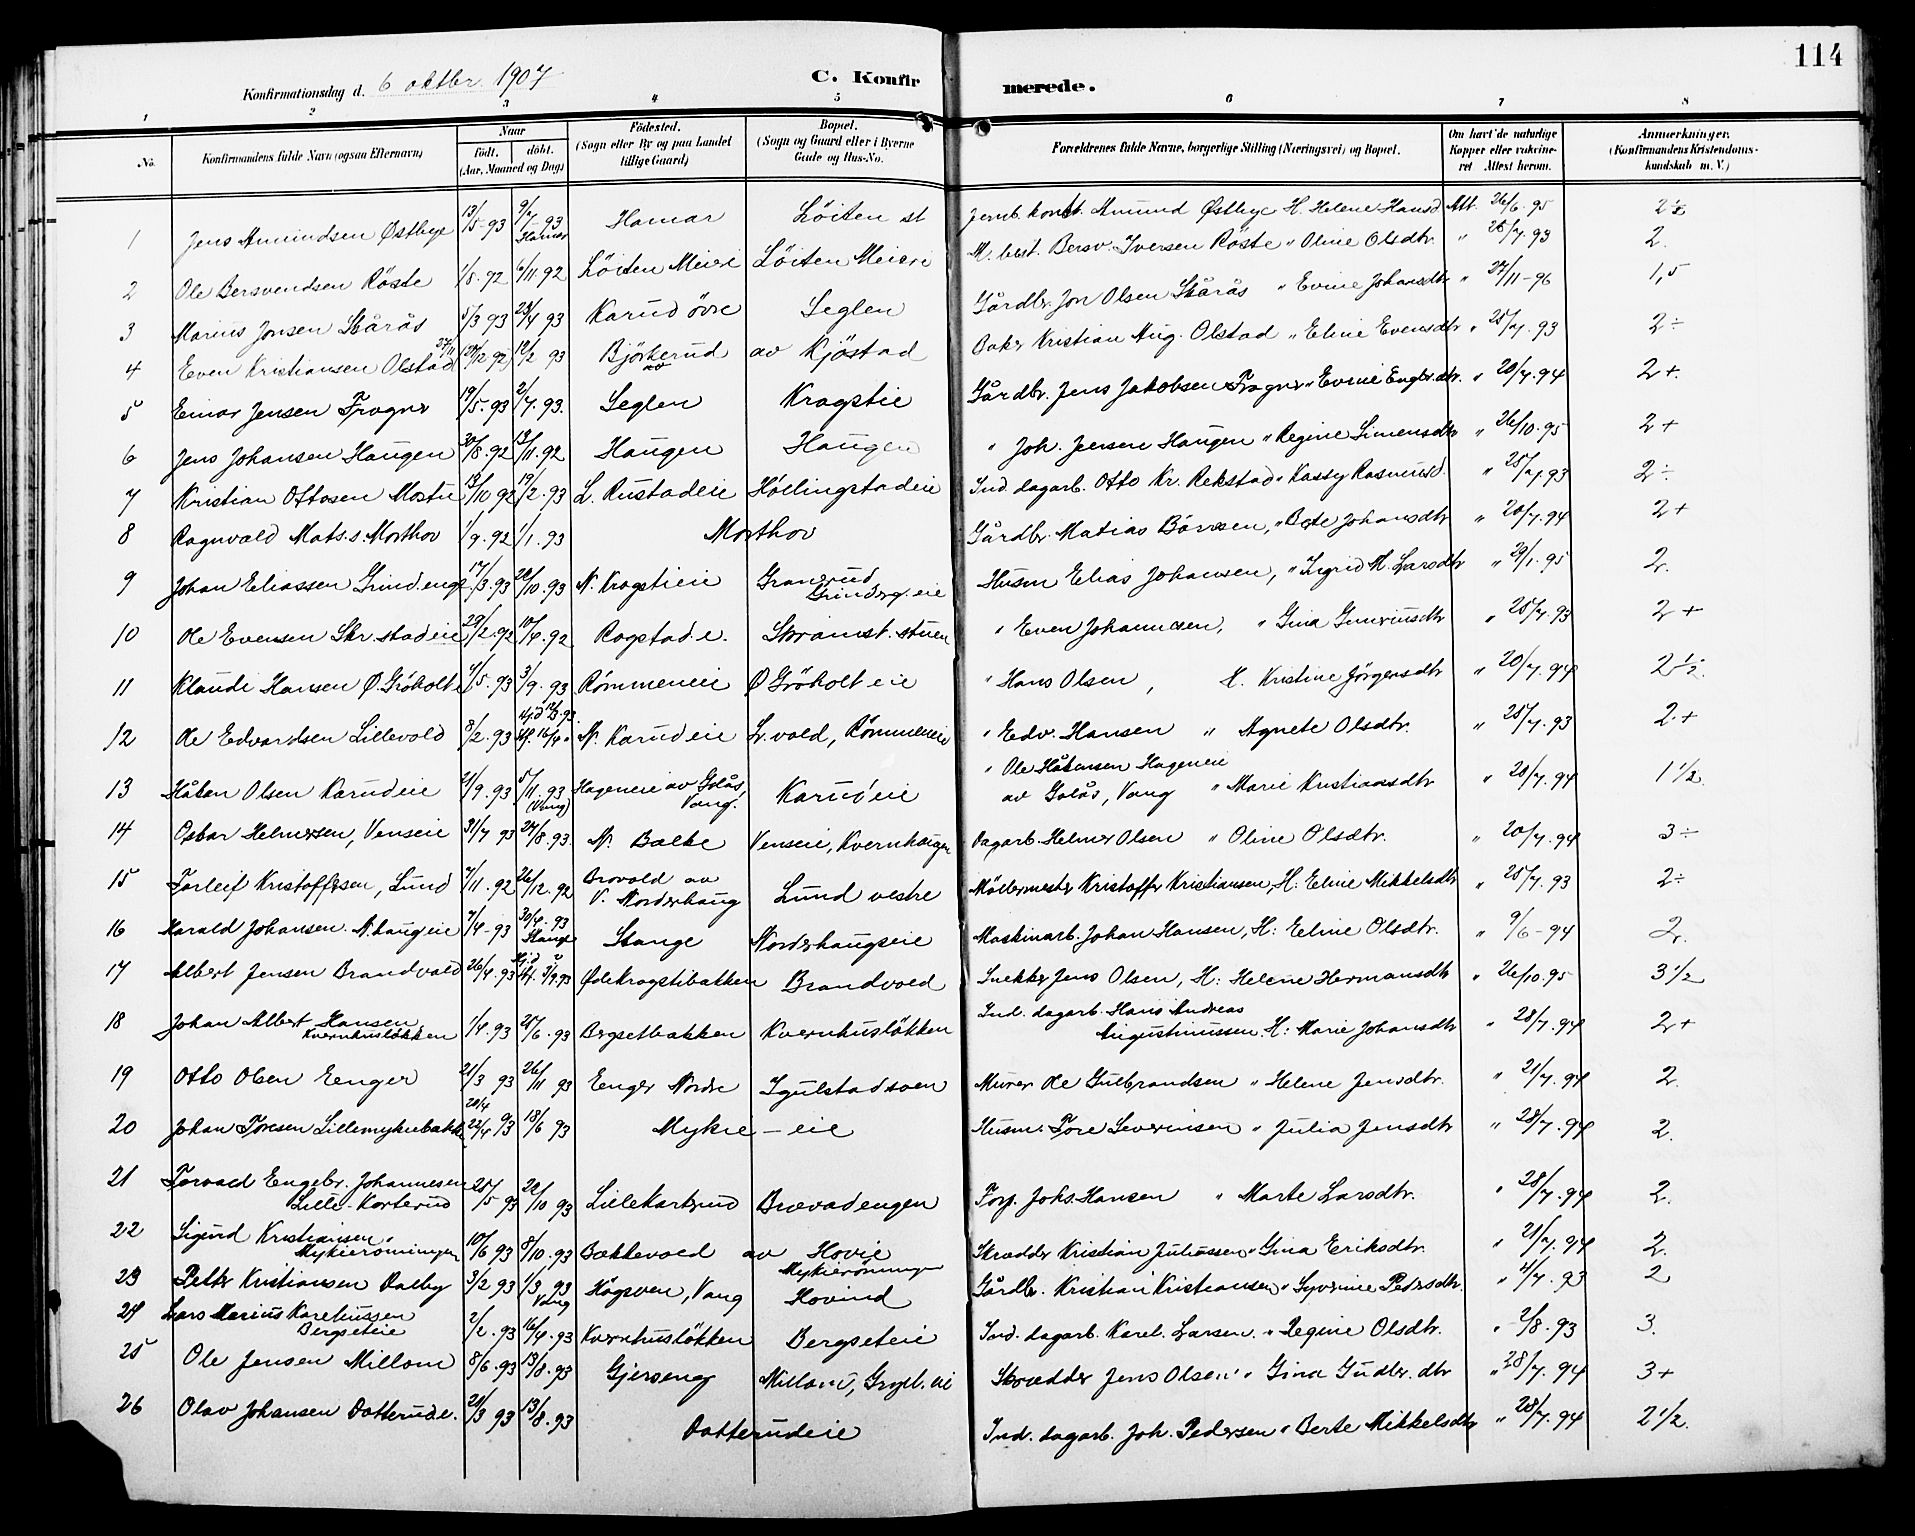 114
Konfirmationsdag d. 6 oktbr. 1907
C. Konfirmerede.
1 2 3 4 5 6 7 8
No.
Konfirmandens fulde Navn (ogsaa Efternavn)
Naar
födt. döbt.
(Aar, Maaned og Dag)
Födested.
(Sogn eller By og paa Landet tillige Gaard)
Bopæl.
(Sogn og Gaard eller i Byerne Gade og Hus-No.
Forældrenes fulde Navne, borgerlige Stilling (Næringsvei) og Bopæl.
Om havt de naturlige Kopper eller vakcineret Attest herom.
Anmerkninger.
(Konfirmandens Kristendomskundskab m. V.)
1 Jens Amundsen Østbye 13/5-93 9/7 93 Hamar Hamar Löiten st Jernb. kont. Amund Østbye H. Helene Hansd Att. 26/6-95 2÷
2 Ole Bersvendsen Röste 1/8.92 6/11 92 Löiten Meieri Löiten Meieri M. best. Bersv. Iversen Röste " Oline Olsdtr. " 25/7.93 2.
3 Marius Jonsen Skårås 5/3 93 23/4 93 Karud övre Seglen Gårdbr. Jon Olsen Skårås " Evine Johansdtr " 27/11-96 1,5
4 Even Kristiansen Olstad 27/11 (27/12 92) 12/2 93 Björkerud av Kjöstad Baker Kristian Aug. Olstad " Eline Evensdtr " 25/7.93 2÷
5 Einar Jensen Frogner 19/5.93 2/7.93. Seglen Kragstie Gårdbr. Jens Jakobsen Frogner " Evine Engbr.dtr. " 20/7.94 2+.
6 Jens Johansen Haugen 30/8.92 13/11.92 Haugen Haugen " Joh. Jensen Haugen " Regine Simensdtr " 26/10.95 2+
7 Kristian Ottosen Mostu 13/10 92 19/2.93 L. Rustadeie Höllingstadeie Ind. dagarb. Otto Kr. Rekstad " Kassy Rasmusd. " 25/7.93 2÷
8 Ragnvald Mats.s. Morthov 1/9.92 1/1.93 Morthov Gårdbr. Matias Börresen, " Berte Johansdtr " 20/7.94 2+
9 Johan Eliassen Grindenge 17/3.93 22/10.93 N. Kragstieie Granerud Grinderg.eie Husm Elias Johansen, " Ingrid M. Larsdtr " 29/1.95 2.
10 Ole Evensen Skr.stadeie 29/2.92 10/4.92 Rogstad.e. Skramst.stuen " Even Johannesen, " Gina Gunerinsdtr " 25/7.93 2+
11 Klaudi Hansen Ø. Gröholt e 4/5.93 3/9.93 Römmeneie Ø Gröholt eie " Hans Olsen, H. Kristine Jörgensdtr " 20/7.94 2 1/2.
12 Ole Edvardsen Lillevold 8/2.93 N. Karudeie L.vold, Römmeneie " Edv. Hansen " Agnete Olsdtr. " 25/7.93 2.+
13 Håken Olsen Karudeie 2/9.93 5/11.93 (Vang) Hageneie av Golås, Vang. Karudeie " Ole Håkensen Hageneie av Golås, Vang " Marie Kristiansdtr " 28/7.94 1 1/2.
14 Oskar Helmersen, Venseie 31/7 93 27/8.93. N. Balke Venseie, Kvernhaugen Dagarb. Helmer Olsen " Oline Olsdtr. " 20/7.94 3÷
15 Torleif Kristoffersen, Lund 7/11.92 26/12.92 Brovold av V. Norderhaug Lund vestre Möllermester Kristoffer Kristiansen, H: Eline Mikkelsdtr " 25/7.93 2÷
16 Harald Johansen N.haugeie 7/4-93 30/4-93 Stange Stange Norderhaugseie Maskinarb. Johan Hansen, H: Eline Olsdtr. " 9/6-94 2.
17 Albert Jensen Brandvold 26/4.93 Ødekragstibakken Brandvold Snekker Jens Olsen, H: Helene Hermansdtr " 26/10.95 3 1/2
18 Johan Albert Hansen Kvernhuslökken 1/4.93 25/6.93 Bergsetbakken Kvernhuslökken Ind. dagarb. Hans Andreas Augustinussen. H: Marie Johansdtr " 28/7.94 2+
19 Otto Olsen Enger 21/3 93 26/11 93 Enger Nordre Igulstadsven Murer Ole Gulbrandsen " Helene Jensdtr. " 21/7.94 2.
20 Johan Toresen Lillemykiebakk 20/4 22/4 93 18/6 93 Mykie - eie Husm. Tore Severinsen " Julia Jensdtr " 28/7.94 2.
21 Torvald Engebr. Johannesen Lille-Korterud 25/5 93 22/10 93 Lillekorterud Brevadengen Forp. Johs. Hansen " Marte Larsdtr. " 28/7.94 2.
22 Sigurd Kristiansen Mykieröningen 10/6 93 8/10.93 Bakkevold av Hovie Mykieröningen Skrædder Kristian Juliussen " Gina Eriksdtr. " 21/7.94 2.
23 Petter Kristiansen Dalby 3/2 93 1/3 93 Vang Högsven, Vang Hovind Gårdbr. Kristian Kristiansen " Syverine Pedersdtr. " 4/7.93 2
24 Lars Marius Kareliussen Bergseteie 2/2.93 16/4.93 Kvernhuslökken Bergseteie Ind. dagarb. Karel. Larsen. " Regine Olsdtr. " 2/8.93 3.
25 Ole Jensen Millom 8/6.93 13/8.93 Gjerseng Millom, Skrædder Jens Olsen " Gina Gudbr.dtr " 28/7.94 3+
26 Olav Johansen Dotterude. 21/3 93 13/8.93 Dotterudeie Ind. dagarb. Joh. Pedersen " Berte Mikkelsdtr " 28/7.94 2 1/2.